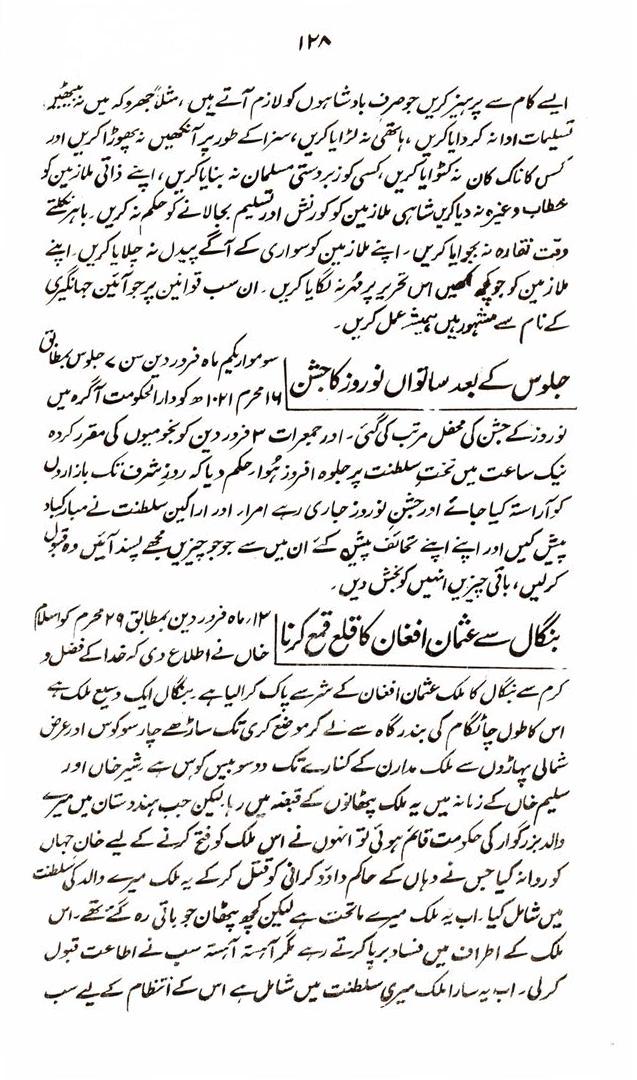 ۱۲۸
ایسے کام سے پرہیز کریں جو صرف بادشاہوں کو لازم آتے ہیں ، مثلاً جھروکہ میں نہ بیٹھیں،
تسلیمات ادا نہ کردایا کریں ، ہاتھی نہ لڑایا کریں، سزا کے طور پر آنکھیں نہ پھوڑا کریں اور
کسی کا ناک کان نہ کٹوایا کریں، کسی کو زبردستی مسلمان نہ بنایا کریں ، اپنے ذاتی ملازمین کو
خطاب وغیرہ نہ دیا کریں شاہی ملازمین کو کورنش اور تسلیم بجالانے کو حکم نہ کریں ۔ باہر نکلتے
وقت نقارہ نہ بجوایا کریں ۔ اپنے ملازمین کو سواری کے آگے پیدل نہ چلایا کریں ۔ اپنے
ملازمین کو جو کچھ لکھیں اس تحریر پر مُہر نہ لگایا کریں ۔ ان سب قوانین پر جو آئین جہانگیری
کے نام سے مشہور ہیں ہمیشہ عمل کریں ۔
جلوس کے بعد ساتواں نوروز کا جشن
سوموار یکم ماہ فروردین سن ۷ جلوس بمطابق
۱۶ محرم ۱۰۲۱ھ کو دارالحکومت آگرہ میں
نوروز کے جشن کی محفل مرتب کی گئی ۔ اور جمعرات ۳ فروردین کو نجومیوں کی مقرر کردہ
نیک ساعت میں تختِ سلطنت پر جلوہ افروز ہُوا، حکم دیا کہ روزِ شرف تک بازاروں
کو آراستہ کیا جائے اور جشنِ نوروز جاری رہے امراء اور اراکین سلطنت نے مبارکباد
پیش کیں اور اپنے اپنے تحائف پیش کئے ان میں سے جو جو چیزیں مجھے پسند آئیں وہ قبول
کرلیں ، باقی چیزیں انہیں کو بخش دیں ۔
بنگال سے عثمان افغان کا قلع قمع کرنا
۱۳، ماہ فروردین بمطابق ۲۹ محرم کو اسلام
خاں نے اطلاع دی کہ خدا کے فضل و
کرم سے بنگال کا ملک عثمان افغان کے شر سے پاک کرالیا ہے بنگال ایک وسیع ملک ہے
اس کا طول چاٹگام کی بندرگاہ سے لے کر موضع کری تک ساڑھے چار سو کوس اور عرض
شمالی پہاڑوں سے ملک مدارن کے کنارے تک دو سو بیس کوس ہے شیر خاں اور
سلیم خاں کے زمانہ میں یہ ملک پٹھانوں کے قبضہ میں رہا لیکن جب ہندوستان میں میرے
والد بزرگوار کی حکومت قائم ہوئی تو انہوں نے اس ملک کو فتح کرنے کے لیے خان جہاں
کو روانہ کیا جس نے وہاں کے حاکم داؤد کرانی کو قتل کرکے یہ ملک میرے والد کی سلطنت
میں شامل کیا ۔ اب یہ ملک میرے ماتحت ہے لیکن کچھ پٹھان جو باقی رہ گئے تھے ۔ اس
ملک کے اطراف میں فساد برپا کرتے رہے مگر آہستہ آہستہ سب نے اطاعت قبول
کرلی ۔ اب یہ سارا ملک میری سلطنت میں شامل ہے اس کے انتظام کے لیے سب